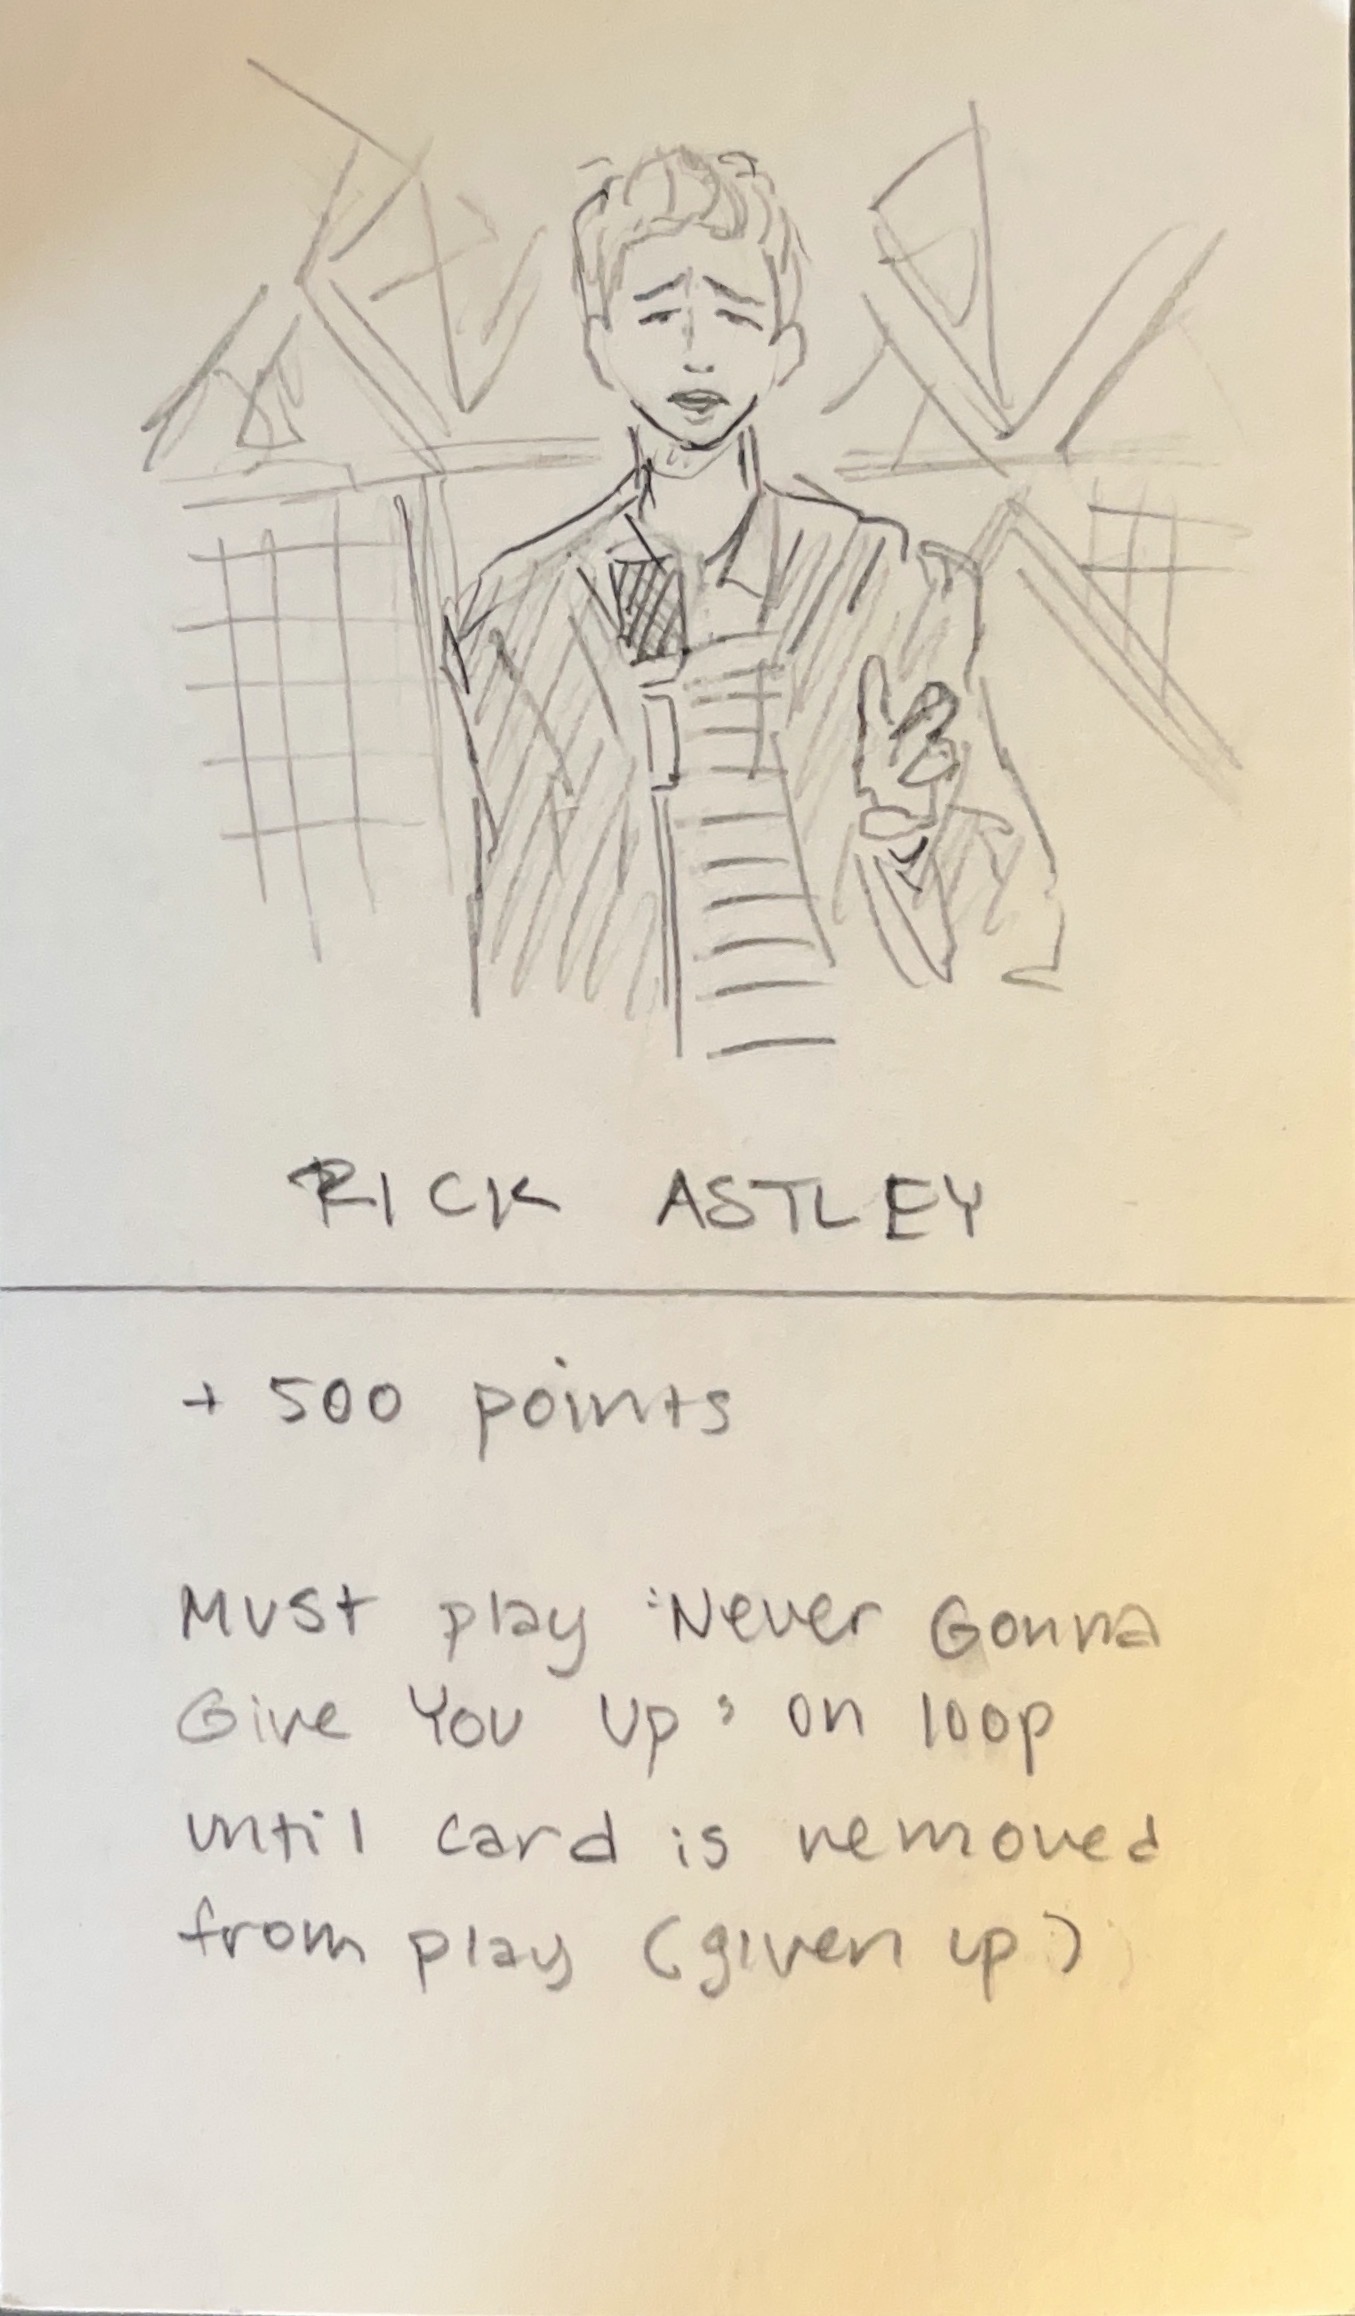 RICK ASTLEY
+ 500 points
Must play "Never Gonna
Give You Up" on loop
until card is removed
from play (given up)